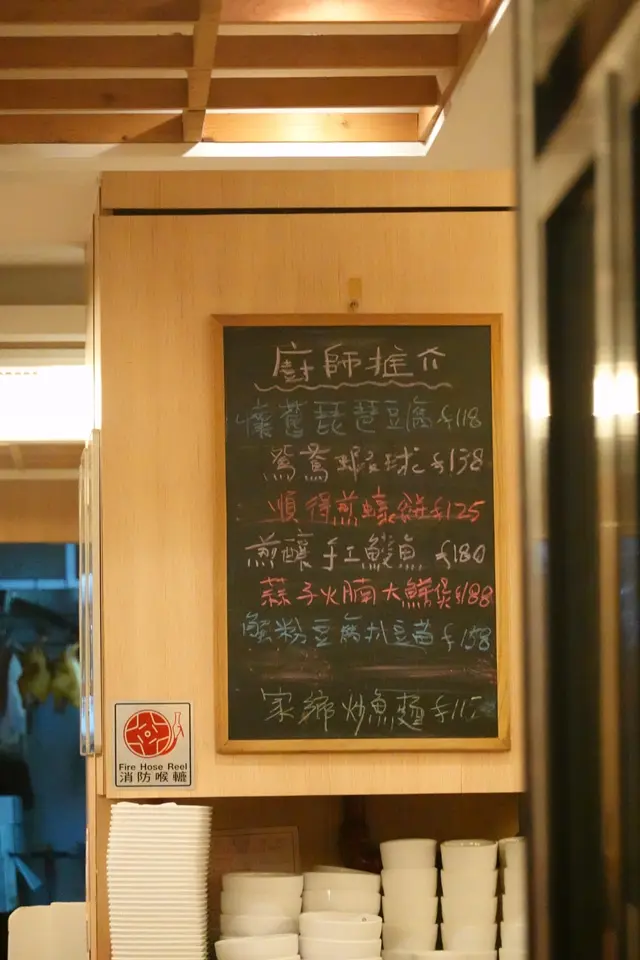 廚師推介
懷舊琵琶豆腐 $118
鴛鴦蝦球 $138
順得煎蠔餅 $125
煎釀手工鯪魚 $180
蒜子火腩大鱔煲 $188
蟹粉豆腐扒豆苗 $158
家鄉炒魚麵
Fire Hose Reel
消防喉轆